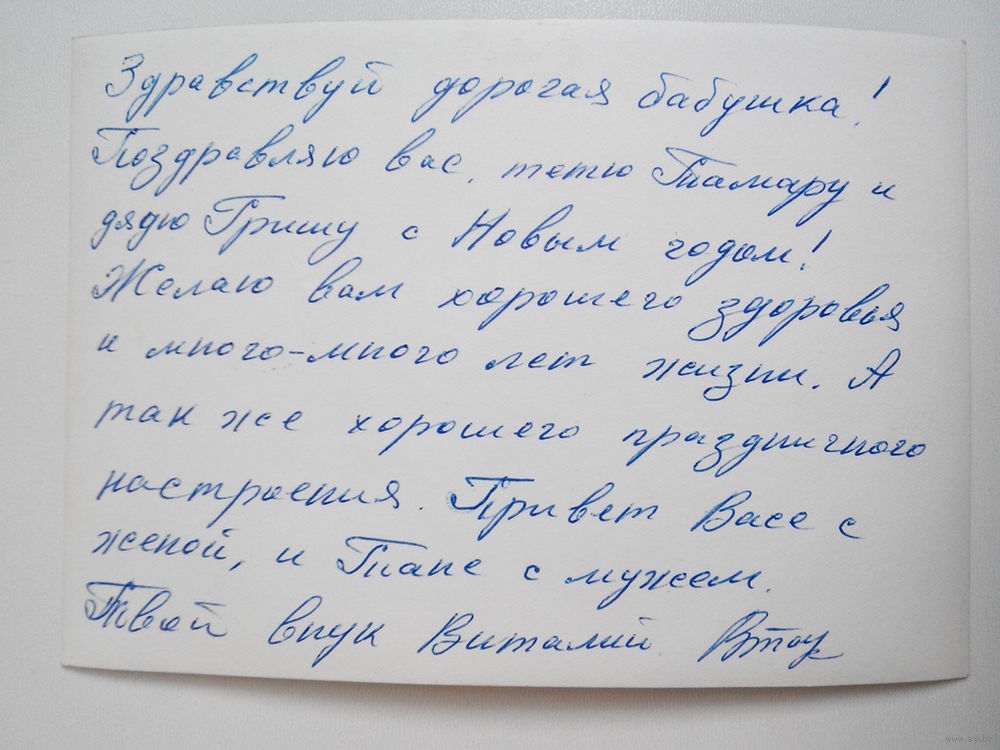 Здравствуй дорогая бабушка!
Поздравляю вас, тетю Тамару и
дядю Гришу с Новым годом!
Желаю вам хорошего здоровья
и много-много лет жизни. А
так же хорошего праздничного
настроения. Привет Васе с
женой, и Тане с мужем.
Твой внук Виталий
www.ay.by